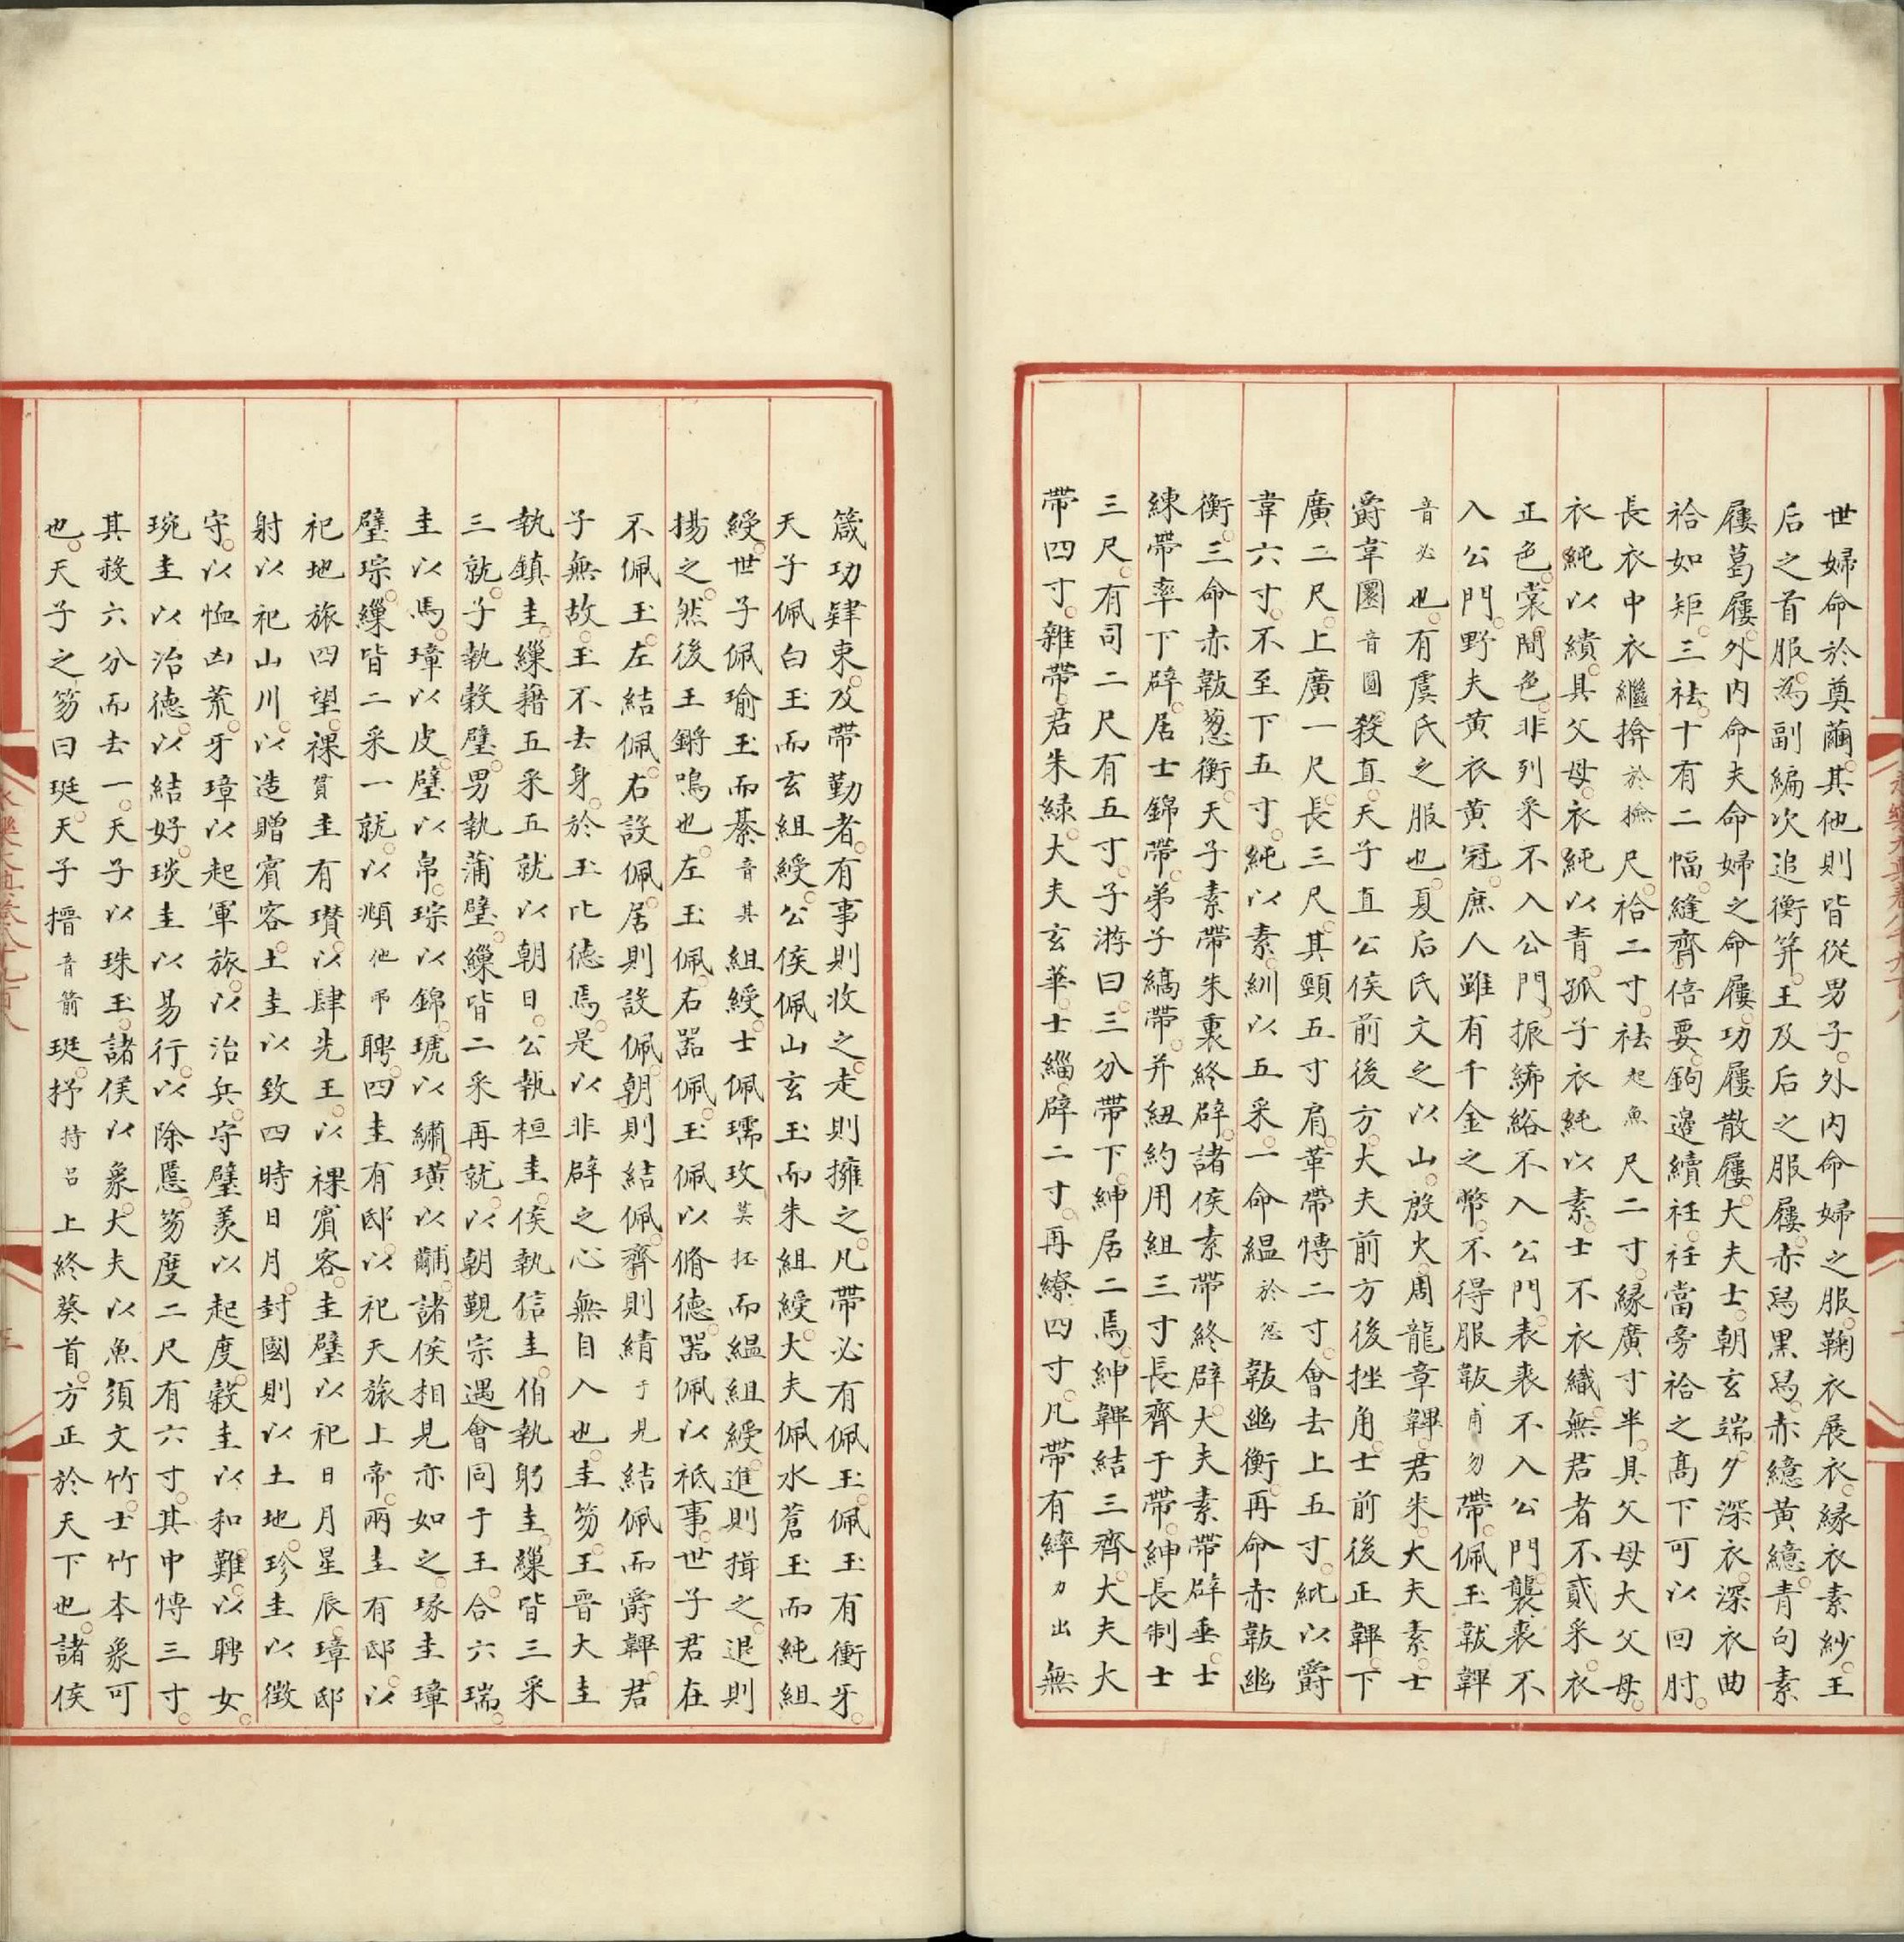 世婦命於奠繭其他則皆從男子外内命婦之服鞠衣展衣緣衣素紗王
后之首服為副編次追衡笄王及后之服屨赤舄黑舄赤繶黄繶青句素
屨葛屨外内命夫命婦之命屨功屨散屨大夫士朝玄端夕深衣深衣曲
袷如矩三袪十有二幅縫齊倍要鉤邊續衽衽當旁袷之髙下可以回肘
長衣中衣繼揜於撿尺袷二寸袪起魚尺二寸縁廣寸半具父母大父母
衣純以繢具父母衣純以青孤子衣純以素士不衣織無君者不貳采衣
正色裳間色非列采不入公門振絺綌不入公門表裘不入公門襲裘不
入公門野夫黄衣黄冠庶人雖有千金之幣不得服韍甫勿帶佩玉韍韠
音必也有虞氏之服也夏后氏文之以山殷火周龍章韠君朱大夫素士
爵韋圜音圓殺直天子直公侯前後方大夫前方後挫角士前後正韠下
廣二尺上廣一尺長三尺其頸五寸肩革帶博二寸會去上五寸紕以爵
韋六寸不至下五寸純以素紃以五采一命緼於忽韍幽衡再命赤韍幽
衡三命赤韍葱衡天子素帶朱裏終辟諸侯素帶終辟大夫素帶辟垂士
練帶率下辟居士錦帶弟子縞帶并紐約用組三寸長齊于帶紳長制士
三尺有司二尺有五寸子游曰三分帶下紳居二焉紳韠結三齊大夫大
帶四寸雜帶君朱緑大夫玄華士緇辟二寸再繚四寸凡帶有繂力出無
箴功肆束及帶勤者有事則收之走則擁之凡帶必有佩玉佩玉有衝牙
天子佩白玉而玄組綬公侯佩山玄玉而朱組綬大夫佩水蒼玉而純組
綬世子佩瑜玉而綦音其組綬士佩瓀玫莫抔而緼組綬進則揖之退則
揚之然後玉鏘鳴也左玉佩右器佩玉佩以脩德器佩以祗事世子君在
不佩玉左結佩右設佩居則設佩朝則結佩齊則綪于見結佩而爵韠君
子無故玉不去身於玉比德焉是以非辟之心無自入也圭笏王晉大圭
執鎮圭繅藉五采五就以朝日公執桓圭侯執信圭伯執躬圭繅皆三采
三就子執穀璧男執蒲璧繅皆二采再就以朝覲宗遇會同于王合六瑞
圭以馬璋以皮璧以帛琮以錦琥以繡璜以黼諸侯相見亦如之瑑圭璋
璧琮繅皆二采一就以頫他弔聘四圭有邸以祀天旅上帝兩圭有邸以
祀地旅四望祼貫圭有瓚以肆先王以祼賓客圭璧以祀日月星辰璋邸
射以祀山川以造贈賓客土圭以致四時日月封國則以土地珍圭以徴
守以恤凶荒牙璋以起軍旅以治兵守璧羨以起度穀圭以和難以聘女
琬圭以治德以結好琰圭以易行以除慝笏度二尺有六寸其中博三寸
其殺六分而去一天子以珠玉諸侯以象大夫以魚須文竹士竹本象可
也天子之笏曰珽天子搢音箭珽抒持呂上終葵首方正於天下也諸侯